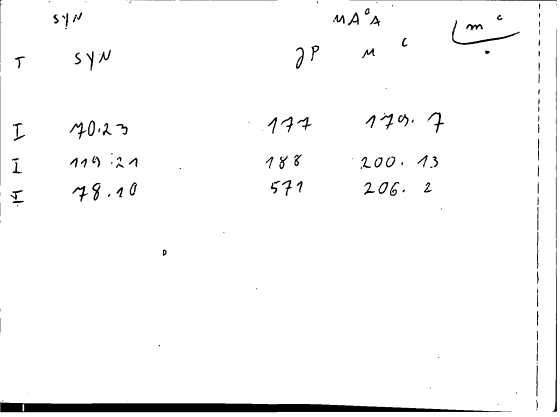 SYN MA°A m c
T SYN JP M C
I 70.23 177 179. 7
I 119.21 188 200. 13
I 78.10 571 206. 2